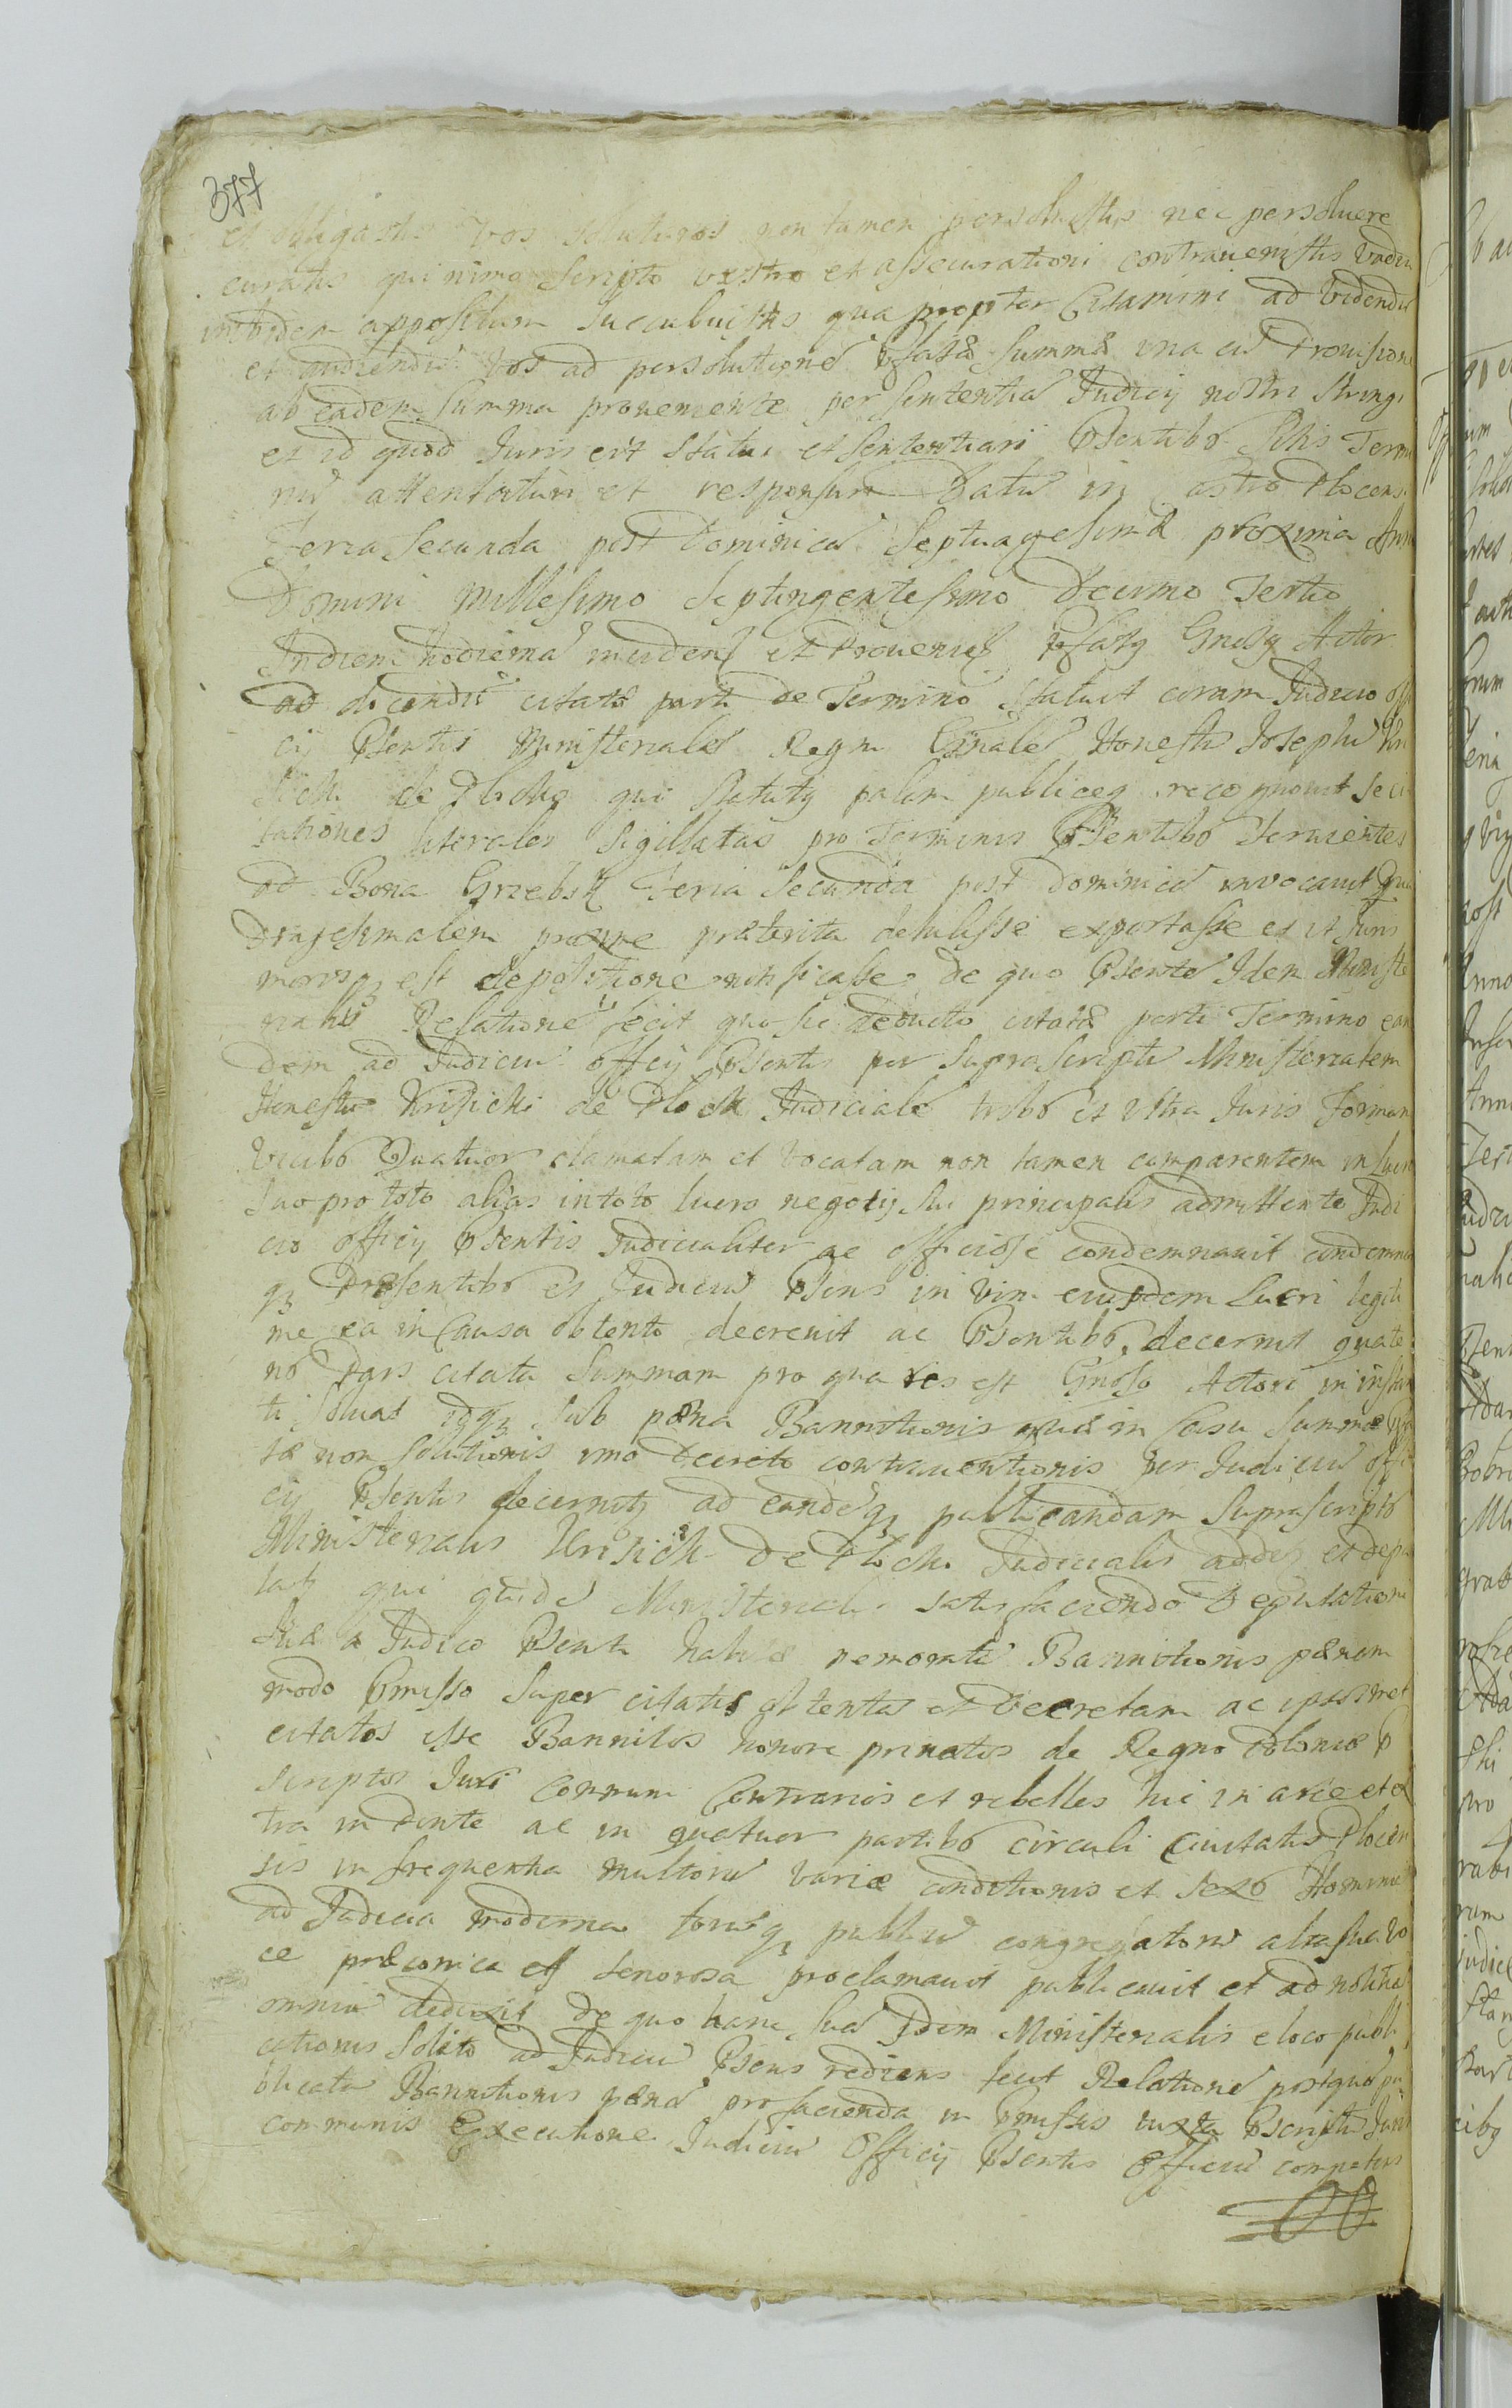 377
et obligastis vos soluturos non tamen persoluistis nec persoluere
curatis qui nimo scripto vestro et assecurationi contrauenistis Vadiu
inibidem appositum succubuistis qua propter Citamini ad Videndu
et audiendu vos ad persolutione psatæ summæ vna cu Prouisione
ab eadem summa proueniente per sententia Judicij nostri stringi
et id quod Juris erit statui et sententiari Psentibo Sitis Termi
nu attentaturi et responsuri Datu in Castro Plocens
Feria Secunda post Dominica Septuagesimæ proxima Anno
Domini Millesimo Septingentesimo Decimo Tertio
In diem hodierna incidens et Proueniens psatg Gnosg Actor
ad dicendu citatæ parti de Termino Statuit coram Judicio offi
cij Psentis Ministeriale Regni Gnale Honestu Josephu Kri
sicki de Plocko qui statutg palam publiceq recognouit se ci
tationes literales Sigillatas pro Terminis Psentibo seruientes
ad Bona Grzebsk Feria Secunda post Dominica invocauit Qua
dragesimalem proxime præterita detulisse exportasse et ut Juris
morisq est depositione notificasse de quo Psente Idem Ministe
rialis Relatione fecit quo sic deducto citatæ parti Termino ean
dem ad Judiciu officij Psentis per suprascriptu Ministerialem
Honestu Krisicki de Plock Judiciale tribo et vltra Juris Formam
Vicibo Quatuor clamatam et vocatam non tamen comparentem in lucro
suo pro toto alias in toto lucro negotij sui principalis admittente Judi
cio officij Psentis Judicialiter ac officiose condemnauit condemna
q Præsentibo et Judiciu Psens in vim eiusdem Lucri legiti
me ea in Causa obtenti decreuit ac Psentibo decernit quate
no Pars citata summam pro qua res est Gnoso Actori in instan
ti soluat idq sub pæna Bannitionis quæ in Casu summæ psa
tæ non solutionis imo Decreto contrauentionis per Judiciu offi
cij Psentis decernitg ad eandeq publicandam suprascriptg
Ministerialis Krisicki de Plock Judicialis additg et depu
tatg qui quide Ministerialis satisfaciendo Deputationi
suæ a Judicio Psenti habitæ memorata Bannitionis pænam
modo Pmisso super citatis obtentam et Decretam ac ipsosmet
citatos esse Bannitos honore priuatos de Regno Poloniæ p
scriptos Juri Communi Contrarios et rebelles hic in arce et ex
tra in Ponte ac in quatuor partibo circuli Ciuitatis Plocen
sis in frequentia multoru variæ conditionis et sexo Hominu
ad Judicia moderna foruq publicu congregatoru alta sua vo
ce præconica et senorosa proclamauit publicauit et ad notitia
omniu deduxit de quo hanc sua Idem Ministerialis e loco publi
cationis solito ad Judiciu Psens rediens fecit Relatione post qua pu
blicata Bannitionis pæna pro facienda in Pmissis iuxta Pscriptu Juris
communis Executione Judiciu Officij Psentis Officiu competens